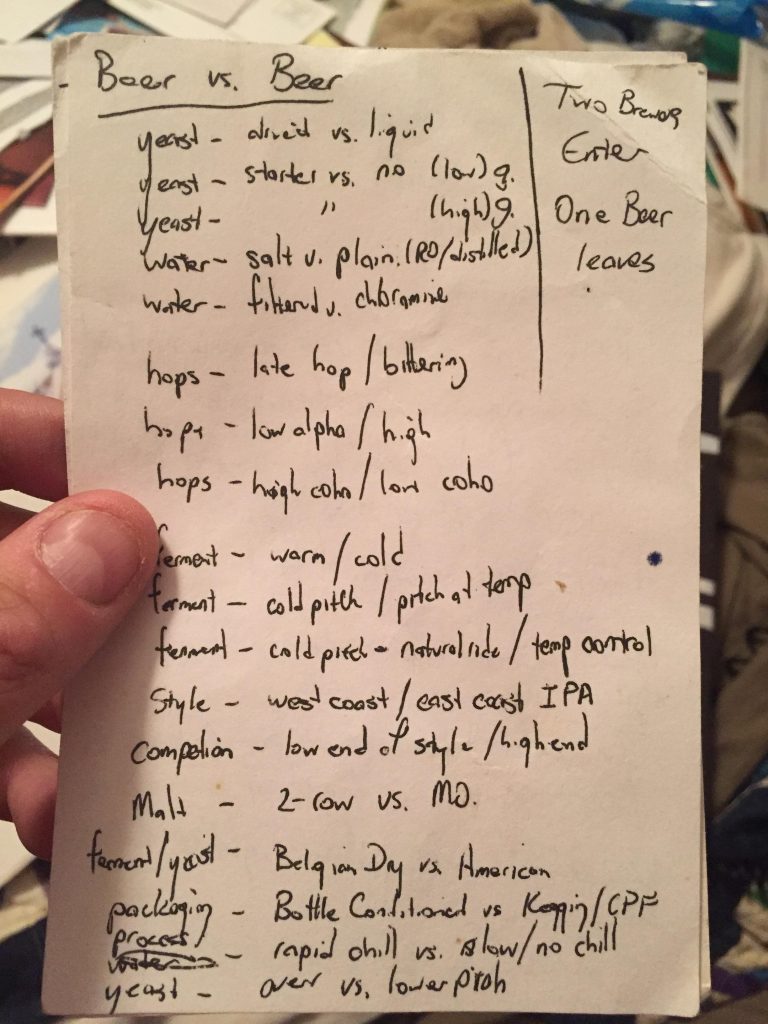 Beer vs. Beer
yeast - dried vs. liquid
yeast - starter vs. no (low) g.
yeast - " (high) g.
water - salt v. plain. (RO/distilled)
water - filtered v. chloramine
hops - late hop / bittering
hops - low alpha / high
hops - high coho / low coho
ferment - warm / cold
ferment - cold pitch / pitch at temp
ferment - cold pitch - natural ride / temp control
Style - west coast / east coast IPA
Competion - low end of style / high end
Malt - 2-row vs. MO.
ferment/yeast - Belgian Dry vs. American
packaging - Bottle Conditioned vs Keggin/CPF
process - rapid chill vs. slow/no chill
water
yeast - over vs. lower pitch
Two Brewers
Enter
One Beer
leaves